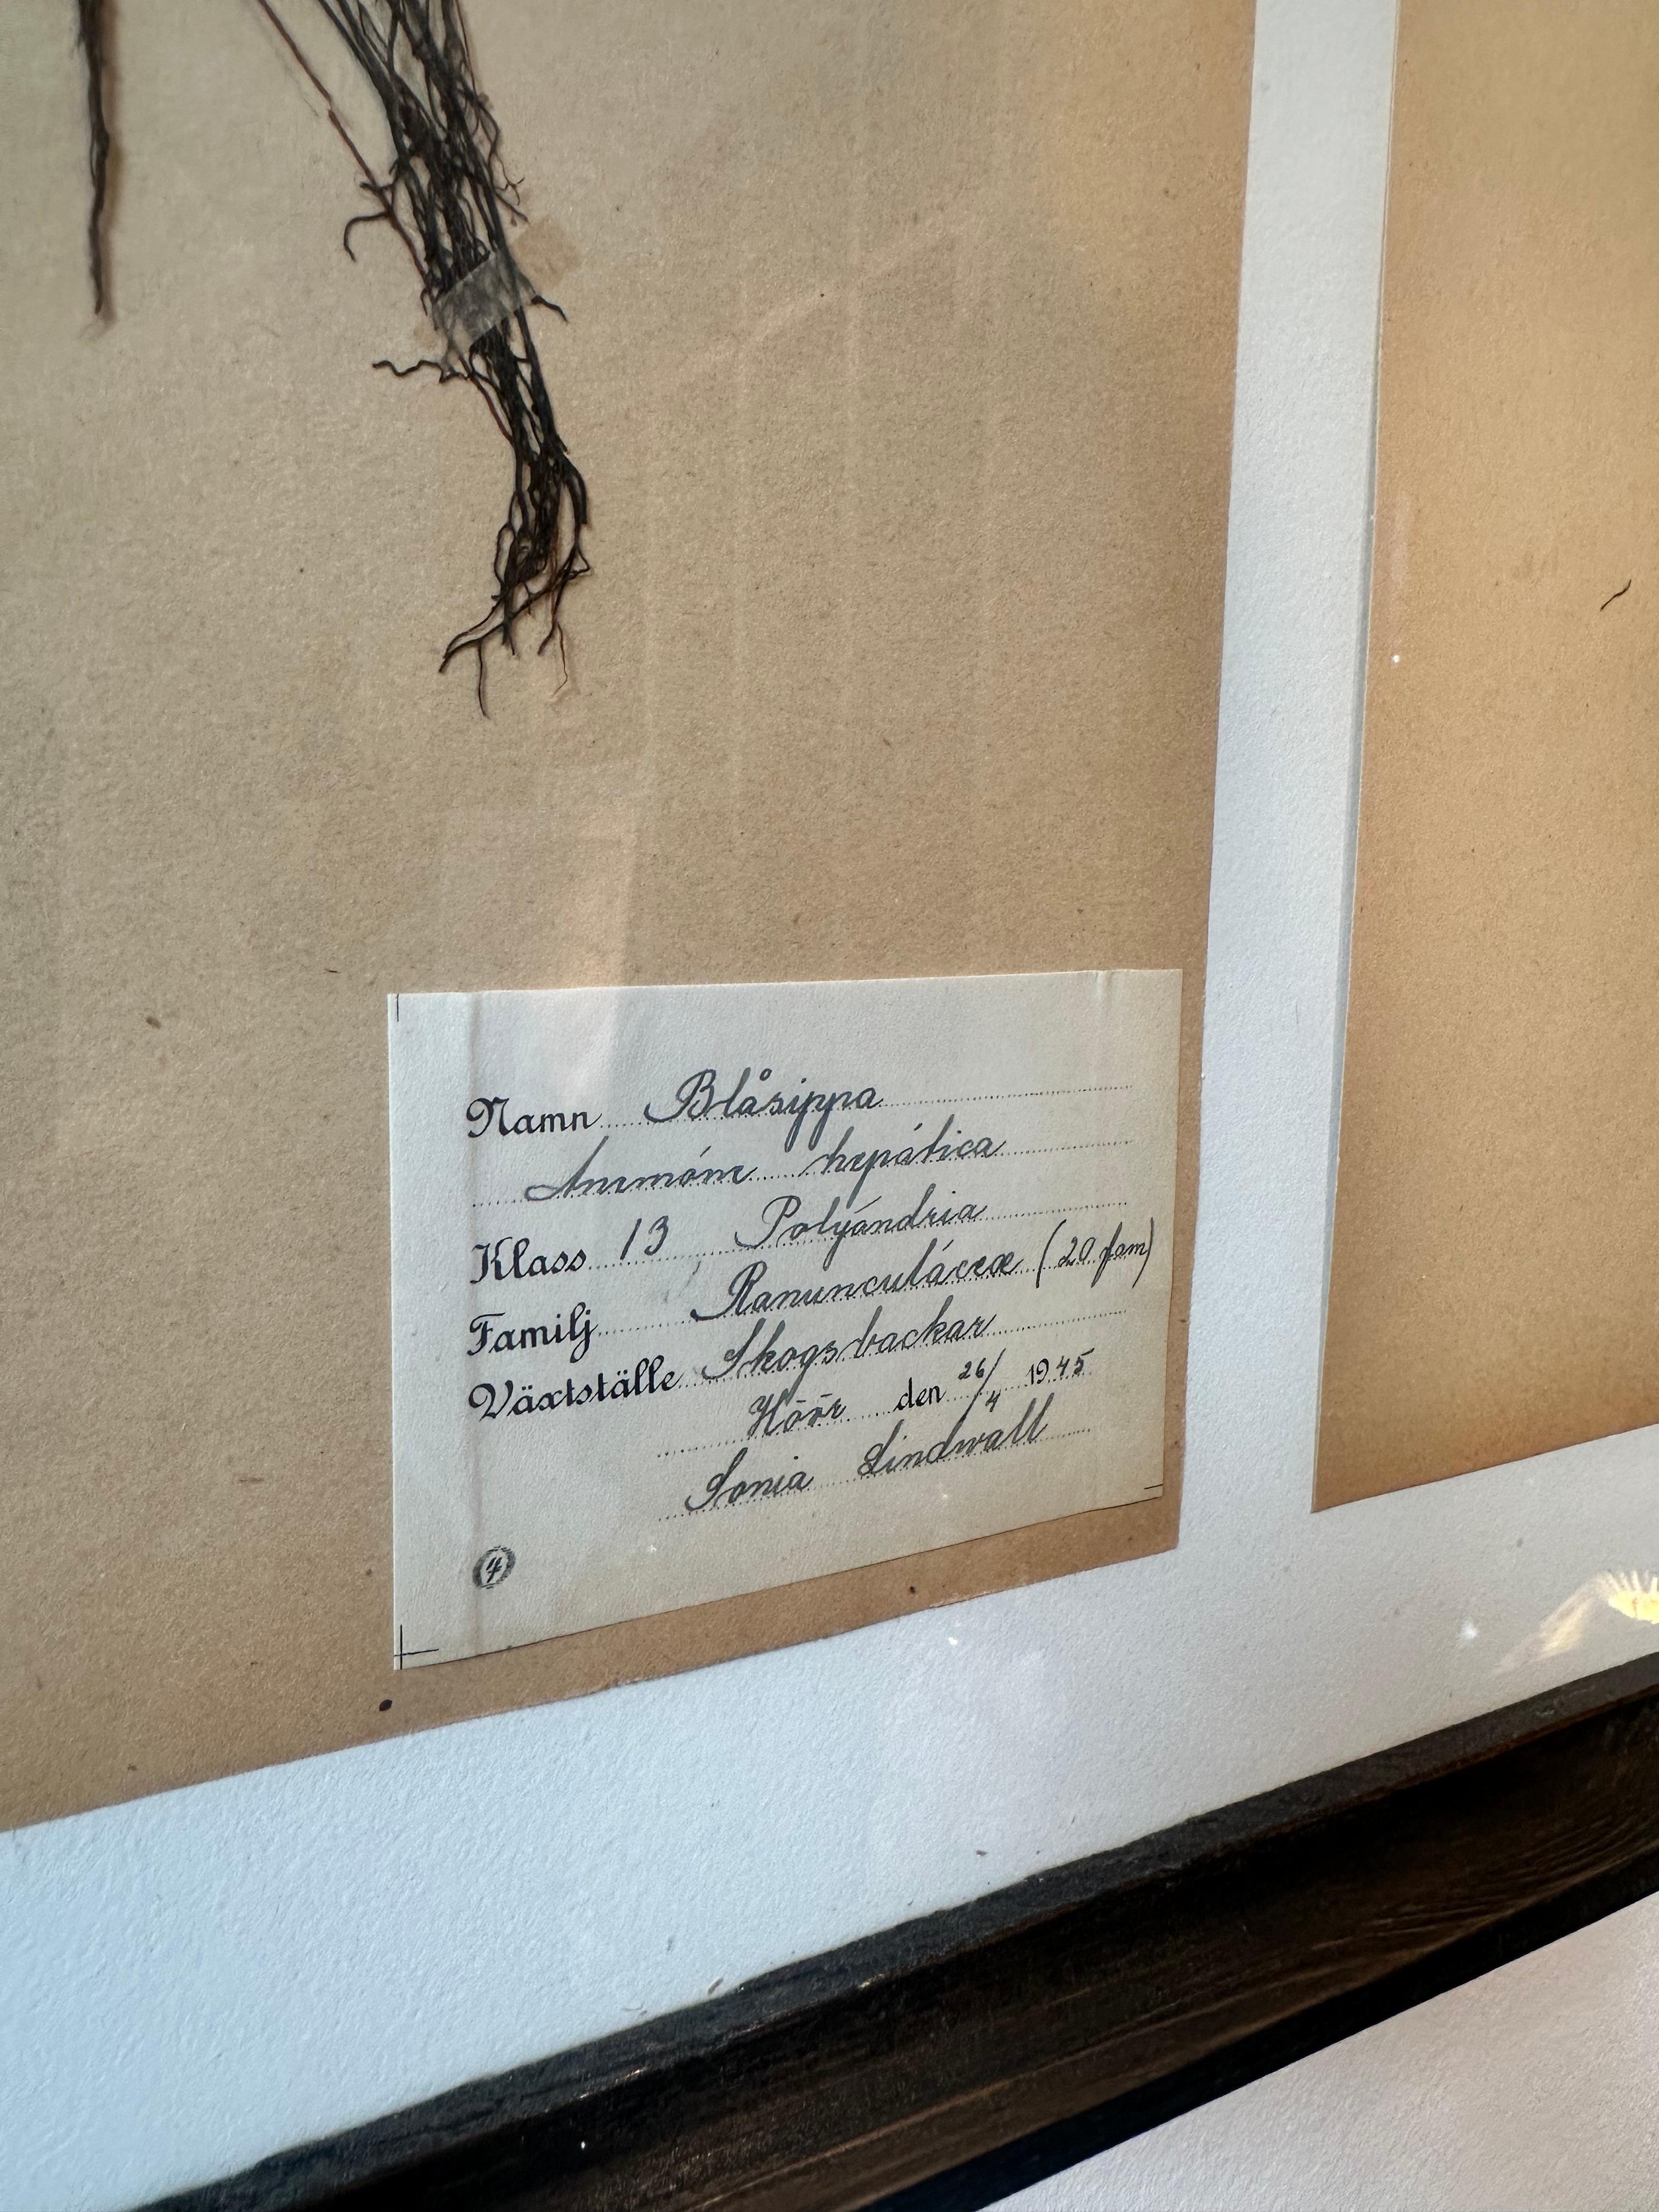 Namn Blåsippa
Anemóne hepática
Klass 13 Polyándria
Familj Ranunculáceæ (20 fam)
Växtställe Skogsbackar
Höör den 26/4 1945
Sonia Lindwall
4